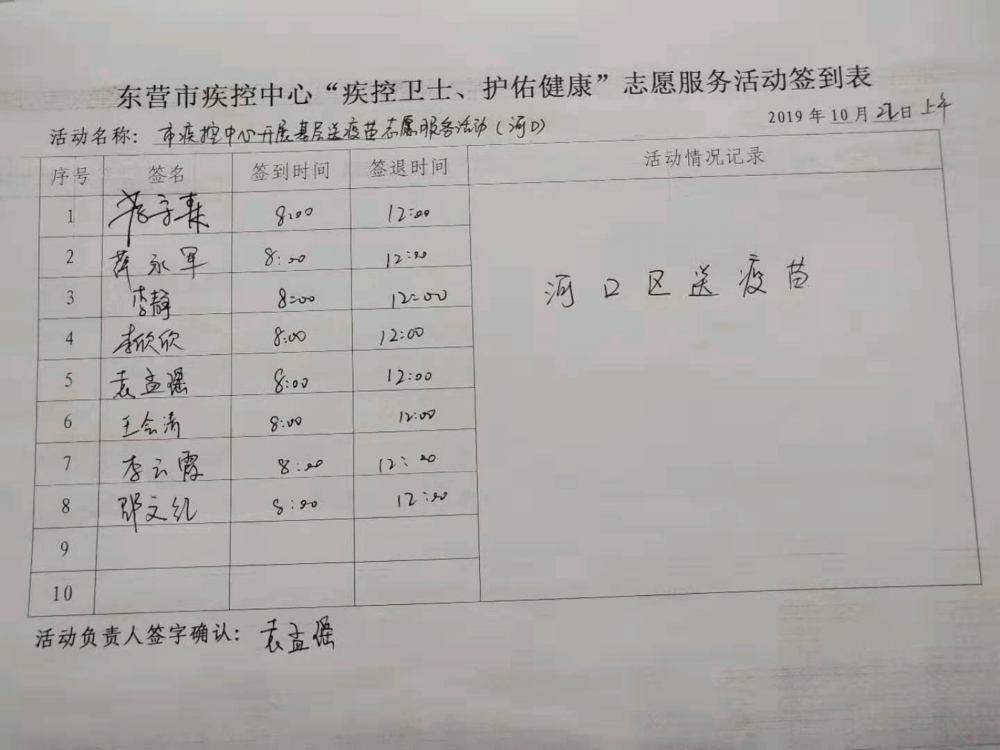 东营市疾控中心“疾控卫士、护佑健康”志愿服务活动签到表
活动名称： 市疾控中心开展基层送疫苗志愿服务活动（河口） 2019 年 10 月 日 上午
序号 签名 签到时间 签退时间 活动情况记录
1 8:00 12:00
2 薛永军 8:00 12:00
3 李静 8:00 12:00
4 李欣欣 8:00 12:00
5 袁孟瑶 8:00 12:00
6 王会涛 8:00 12:00
7 李云霞 8:00 12:00
8 文红 8:00 12:00
9
10
河口区送疫苗
活动负责人签字确认： 袁孟瑶